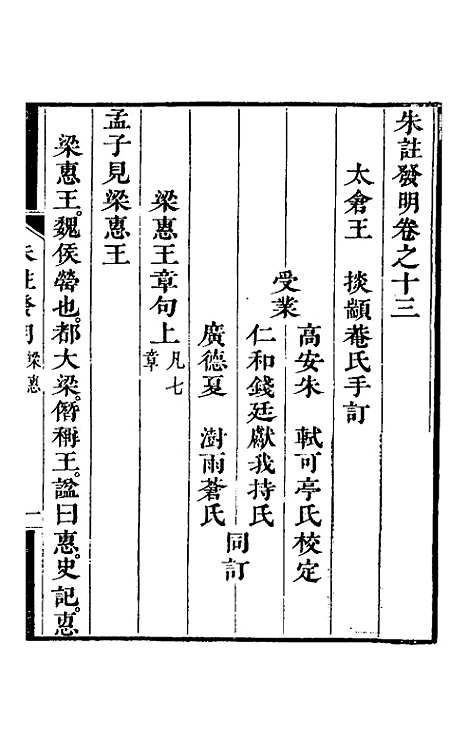 朱註發明卷之十三
太倉王　掞顓菴氏手訂
受業
高安朱　軾可亭氏校定
仁和錢廷獻我持氏
廣德夏　澍雨蒼氏
同訂
梁惠王章句上凡七章
孟子見梁惠王
梁惠王。魏侯罃也。都大梁。僭稱王。諡曰惠。史記。惠
朱註發明　梁惠　一